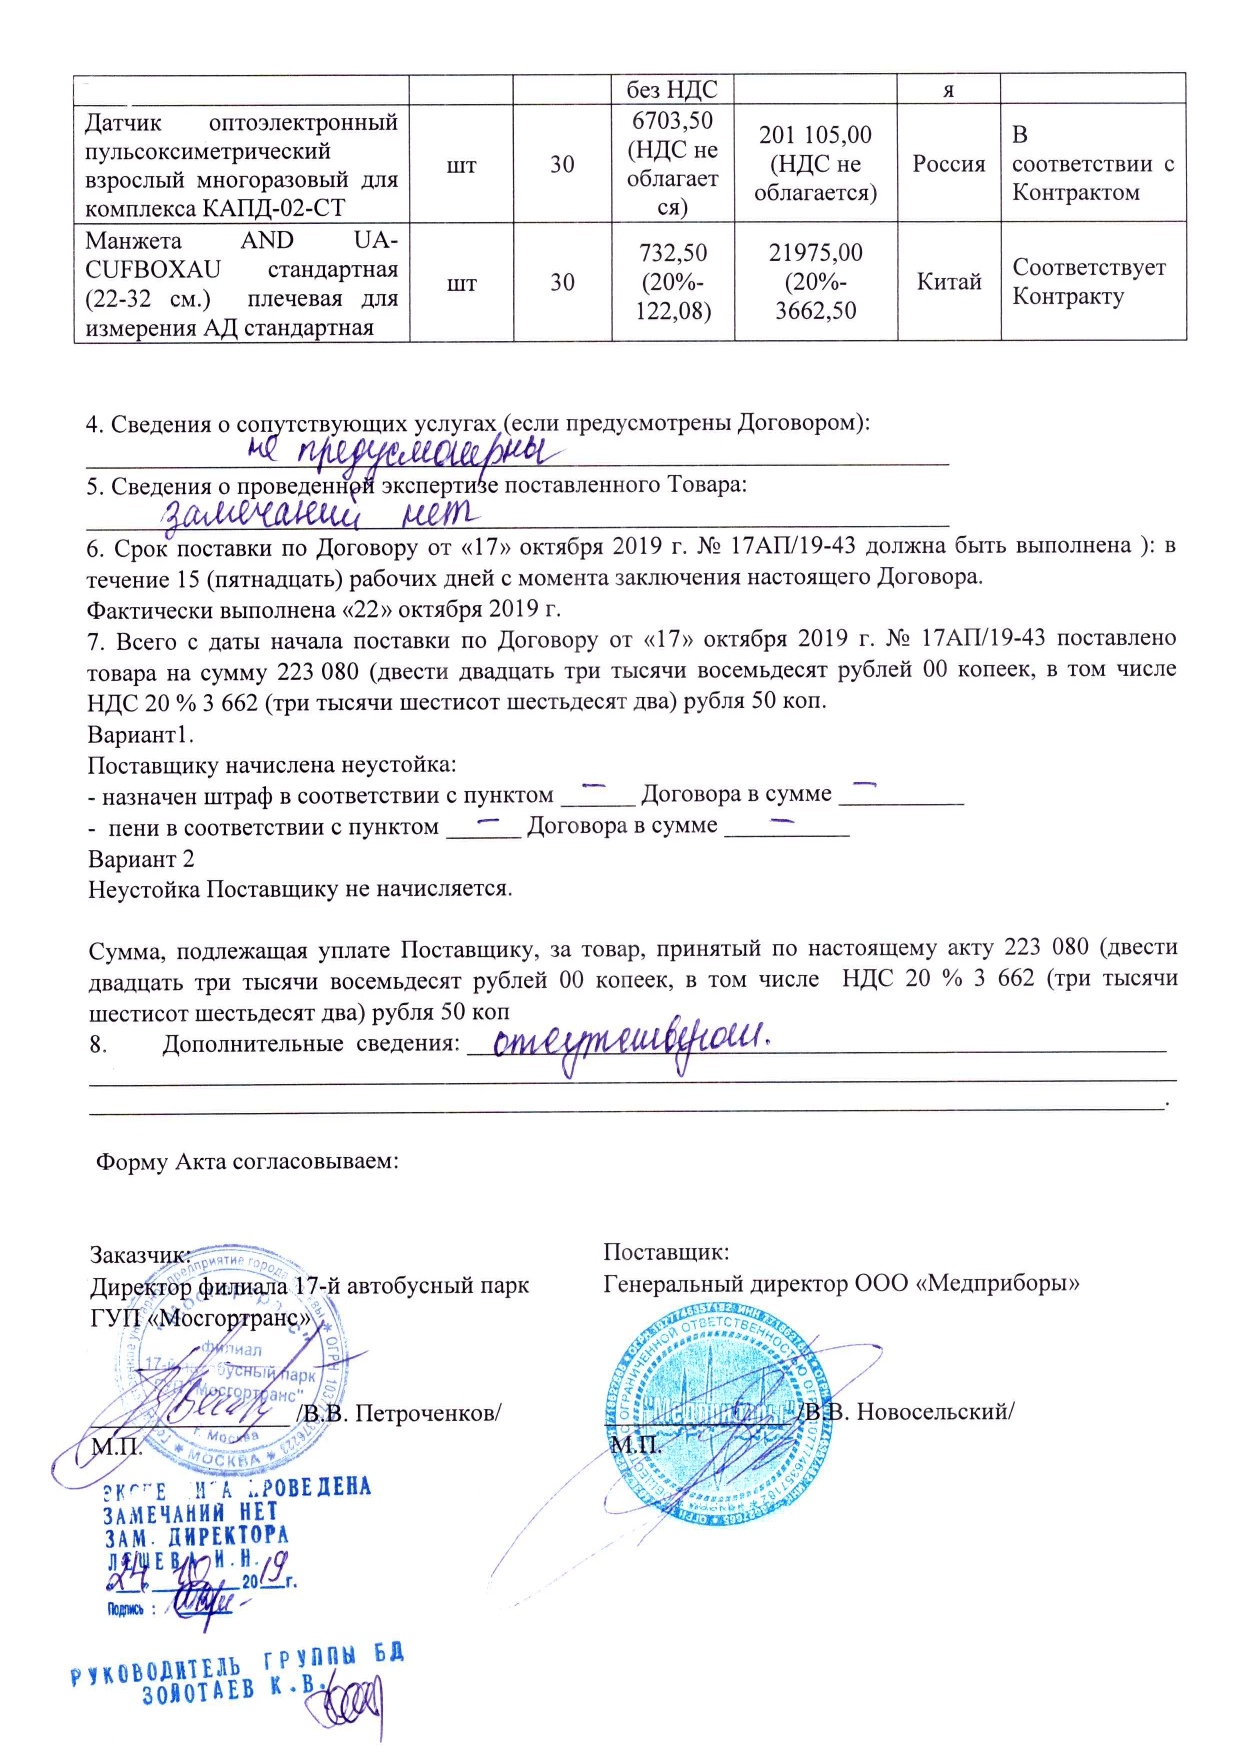 без НДС я
Датчик оптоэлектронный
пульсоксиметрический
взрослый многоразовый для
комплекса КАПД-02-СТ
шт
30
6703,50
(НДС не
облагает
ся)
201 105,00
(НДС не
облагается)
Россия
В
соответствии с
Контрактом
Манжета AND UA-
CUFBOXAU стандартная
(22-32 см.) плечевая для
измерения АД стандартная
шт
30
732,50
(20%-
122,08)
21975,00
(20%-
3662,50
Китай
Соответствует
Контракту
4. Сведения о сопутствующих услугах (если предусмотрены Договором):
не предусмотрены
5. Сведения о проведенной экспертизе поставленного Товара:
замечаний нет
6. Срок поставки по Договору от «17» октября 2019 г. № 17АП/19-43 должна быть выполнена ): в
течение 15 (пятнадцать) рабочих дней с момента заключения настоящего Договора.
Фактически выполнена «22» октября 2019 г.
7. Всего с даты начала поставки по Договору от «17» октября 2019 г. № 17АП/19-43 поставлено
товара на сумму 223 080 (двести двадцать три тысячи восемьдесят рублей 00 копеек, в том числе
НДС 20 % 3 662 (три тысячи шестисот шестьдесят два) рубля 50 коп.
Вариант1.
Поставщику начислена неустойка:
- назначен штраф в соответствии с пунктом — Договора в сумме —
- пени в соответствии с пунктом — Договора в сумме —
Вариант 2
Неустойка Поставщику не начисляется.
Сумма, подлежащая уплате Поставщику, за товар, принятый по настоящему акту 223 080 (двести
двадцать три тысячи восемьдесят рублей 00 копеек, в том числе НДС 20 % 3 662 (три тысячи
шестисот шестьдесят два) рубля 50 коп
8. Дополнительные сведения: отсутствуют.
Форму Акта согласовываем:
Заказчик:
Директор филиала 17-й автобусный парк
ГУП «Мосгортранс»
/В.В. Петроченков/
М.П.
Поставщик:
Генеральный директор ООО «Медприборы»
/В.В. Новосельский/
М.П.
"Мосгортранс"
филиал
17-й автобусный парк
ГУП "Мосгортранс"
г. Москва
МОСКВА
"Медприборы"
ПРОВЕДЕНА
ЗАМЕЧАНИЙ НЕТ
ЗАМ. ДИРЕКТОРА
ЛЕШЕВА И.Н.
24 10 2019 г.
Подпись :
РУКОВОДИТЕЛЬ ГРУППЫ БД
ЗОЛОТАЕВ К.В.